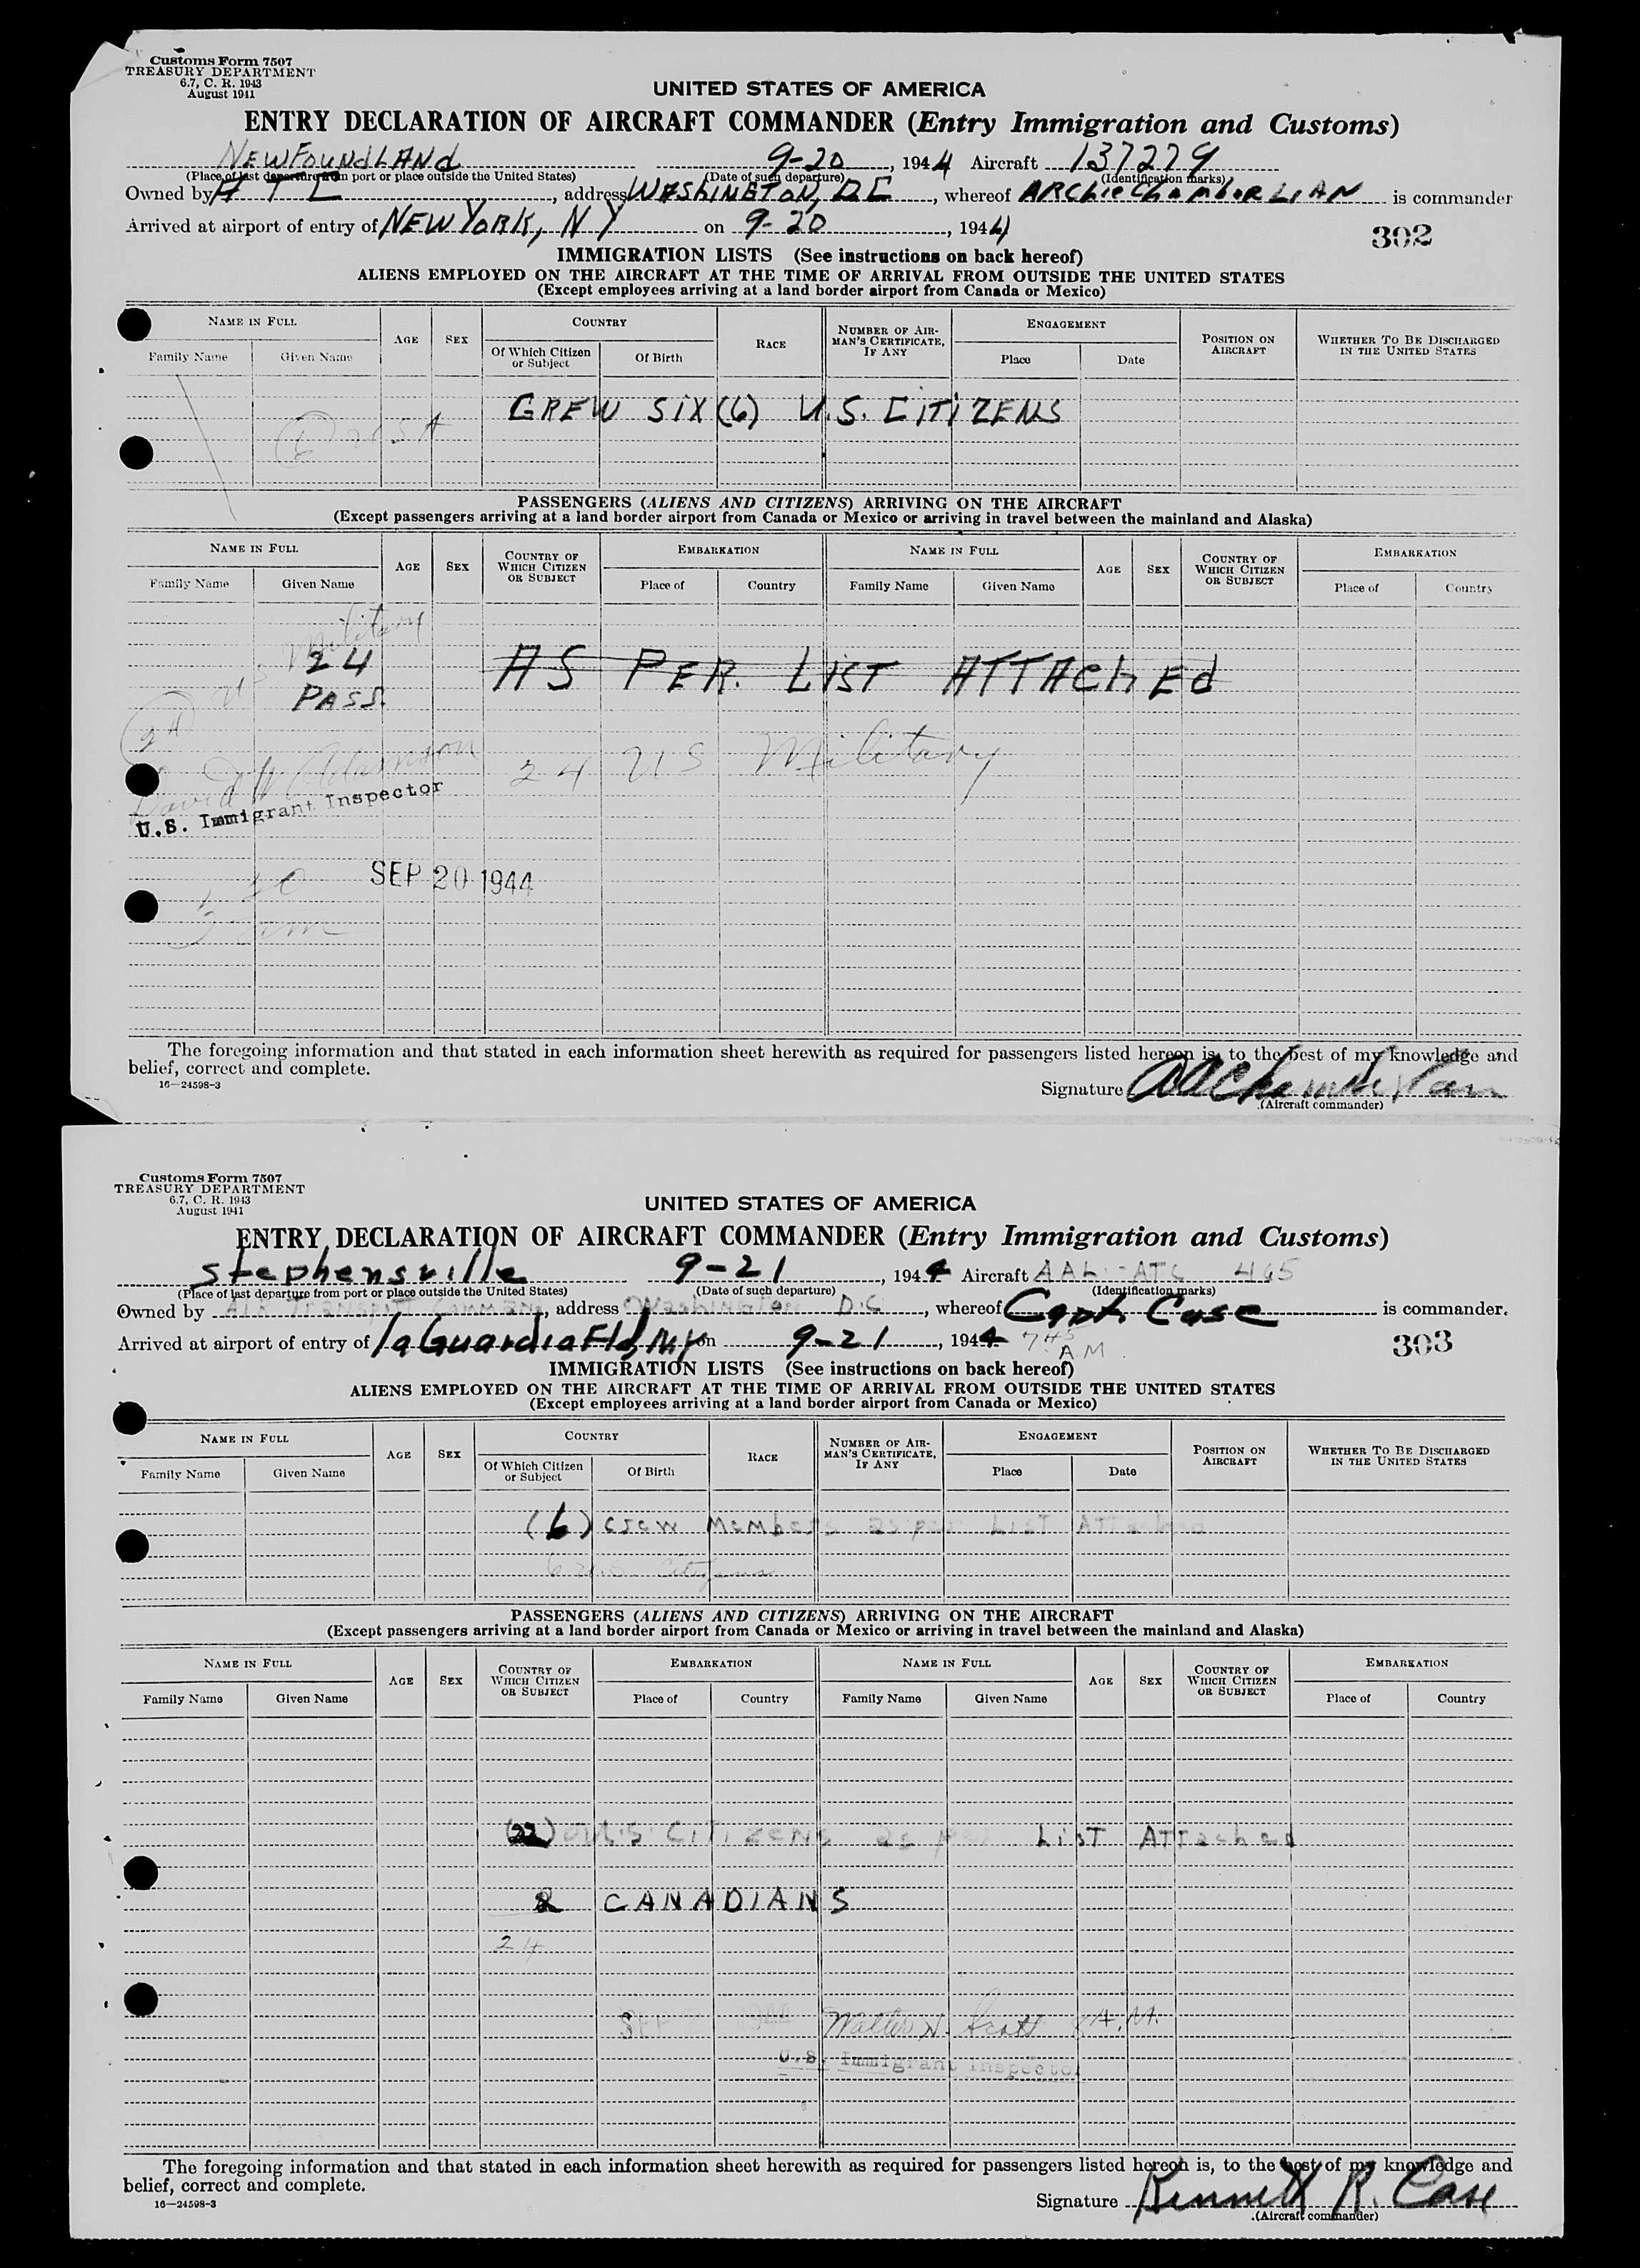 Customs Form 7507
TREASURY DEPARTMENT
6.7, C. R. 1943
August 1941
UNITED STATES OF AMERICA
ENTRY DECLARATION OF AIRCRAFT COMMANDER (Entry Immigration and Customs)
NEWFOUNDLANd 9-20, 1944 Aircraft 137279
(Place of last departure from port or place outside the United States) (Date of such departure) (Identification marks)
Owned by A T C, address WASHINGTON, DC, whereof ARCHie ChambeRLIAN is commander
Arrived at airport of entry of NEW YORK, N Y on 9-20, 1944
302
IMMIGRATION LISTS (See instructions on back hereof)
ALIENS EMPLOYED ON THE AIRCRAFT AT THE TIME OF ARRIVAL FROM OUTSIDE THE UNITED STATES
(Except employees arriving at a land border airport from Canada or Mexico)
NAME IN FULL AGE SEX COUNTRY RACE NUMBER OF AIRMAN'S CERTIFICATE, IF ANY ENGAGEMENT POSITION ON AIRCRAFT WHETHER TO BE DISCHARGED IN THE UNITED STATES
Family Name Given Name Of Which Citizen or Subject Of Birth Place Date
CREW SIX (6) U.S. CITIZENS
6 USA
PASSENGERS (ALIENS AND CITIZENS) ARRIVING ON THE AIRCRAFT
(Except passengers arriving at a land border airport from Canada or Mexico or arriving in travel between the mainland and Alaska)
NAME IN FULL AGE SEX COUNTRY OF WHICH CITIZEN OR SUBJECT EMBARKATION NAME IN FULL AGE SEX COUNTRY OF WHICH CITIZEN OR SUBJECT EMBARKATION
Family Name Given Name Place of Country Family Name Given Name Place of Country
Military
24 AS PER. LIST ATTAChEd
US
PASS.
24
24 US Military
David W Adamson
U.S. Immigrant Inspector
SEP 20 1944
am
The foregoing information and that stated in each information sheet herewith as required for passengers listed hereon is, to the best of my knowledge and
belief, correct and complete.
16—24598-3
Signature AAChamberlain
(Aircraft commander)
Customs Form 7507
TREASURY DEPARTMENT
6.7, C. R. 1943
August 1941
UNITED STATES OF AMERICA
ENTRY DECLARATION OF AIRCRAFT COMMANDER (Entry Immigration and Customs)
Stephensville 9-21, 1944 Aircraft AAL-ATC 465
(Place of last departure from port or place outside the United States) (Date of such departure) (Identification marks)
Owned by Air Transport Command, address Washington D.C, whereof Capt Case is commander.
Arrived at airport of entry of LaGuardia Fld, NY on 9-21, 1944 745 A.M.
303
IMMIGRATION LISTS (See instructions on back hereof)
ALIENS EMPLOYED ON THE AIRCRAFT AT THE TIME OF ARRIVAL FROM OUTSIDE THE UNITED STATES
(Except employees arriving at a land border airport from Canada or Mexico)
NAME IN FULL AGE SEX COUNTRY RACE NUMBER OF AIRMAN'S CERTIFICATE, IF ANY ENGAGEMENT POSITION ON AIRCRAFT WHETHER TO BE DISCHARGED IN THE UNITED STATES
Family Name Given Name Of Which Citizen or Subject Of Birth Place Date
(6) Crew Members as per List Attached
6 U.S. Citizens
PASSENGERS (ALIENS AND CITIZENS) ARRIVING ON THE AIRCRAFT
(Except passengers arriving at a land border airport from Canada or Mexico or arriving in travel between the mainland and Alaska)
NAME IN FULL AGE SEX COUNTRY OF WHICH CITIZEN OR SUBJECT EMBARKATION NAME IN FULL AGE SEX COUNTRY OF WHICH CITIZEN OR SUBJECT EMBARKATION
Family Name Given Name Place of Country Family Name Given Name Place of Country
(22) U.S. CITIZENS as per LIST ATTached
2 CANADIANS
24
SEP 1944 Walter N. Scott 8 A.M.
U.S. Immigrant Inspector
The foregoing information and that stated in each information sheet herewith as required for passengers listed hereon is, to the best of my knowledge and
belief, correct and complete.
16—24598-3
Signature Kenneth R. Case
(Aircraft commander)